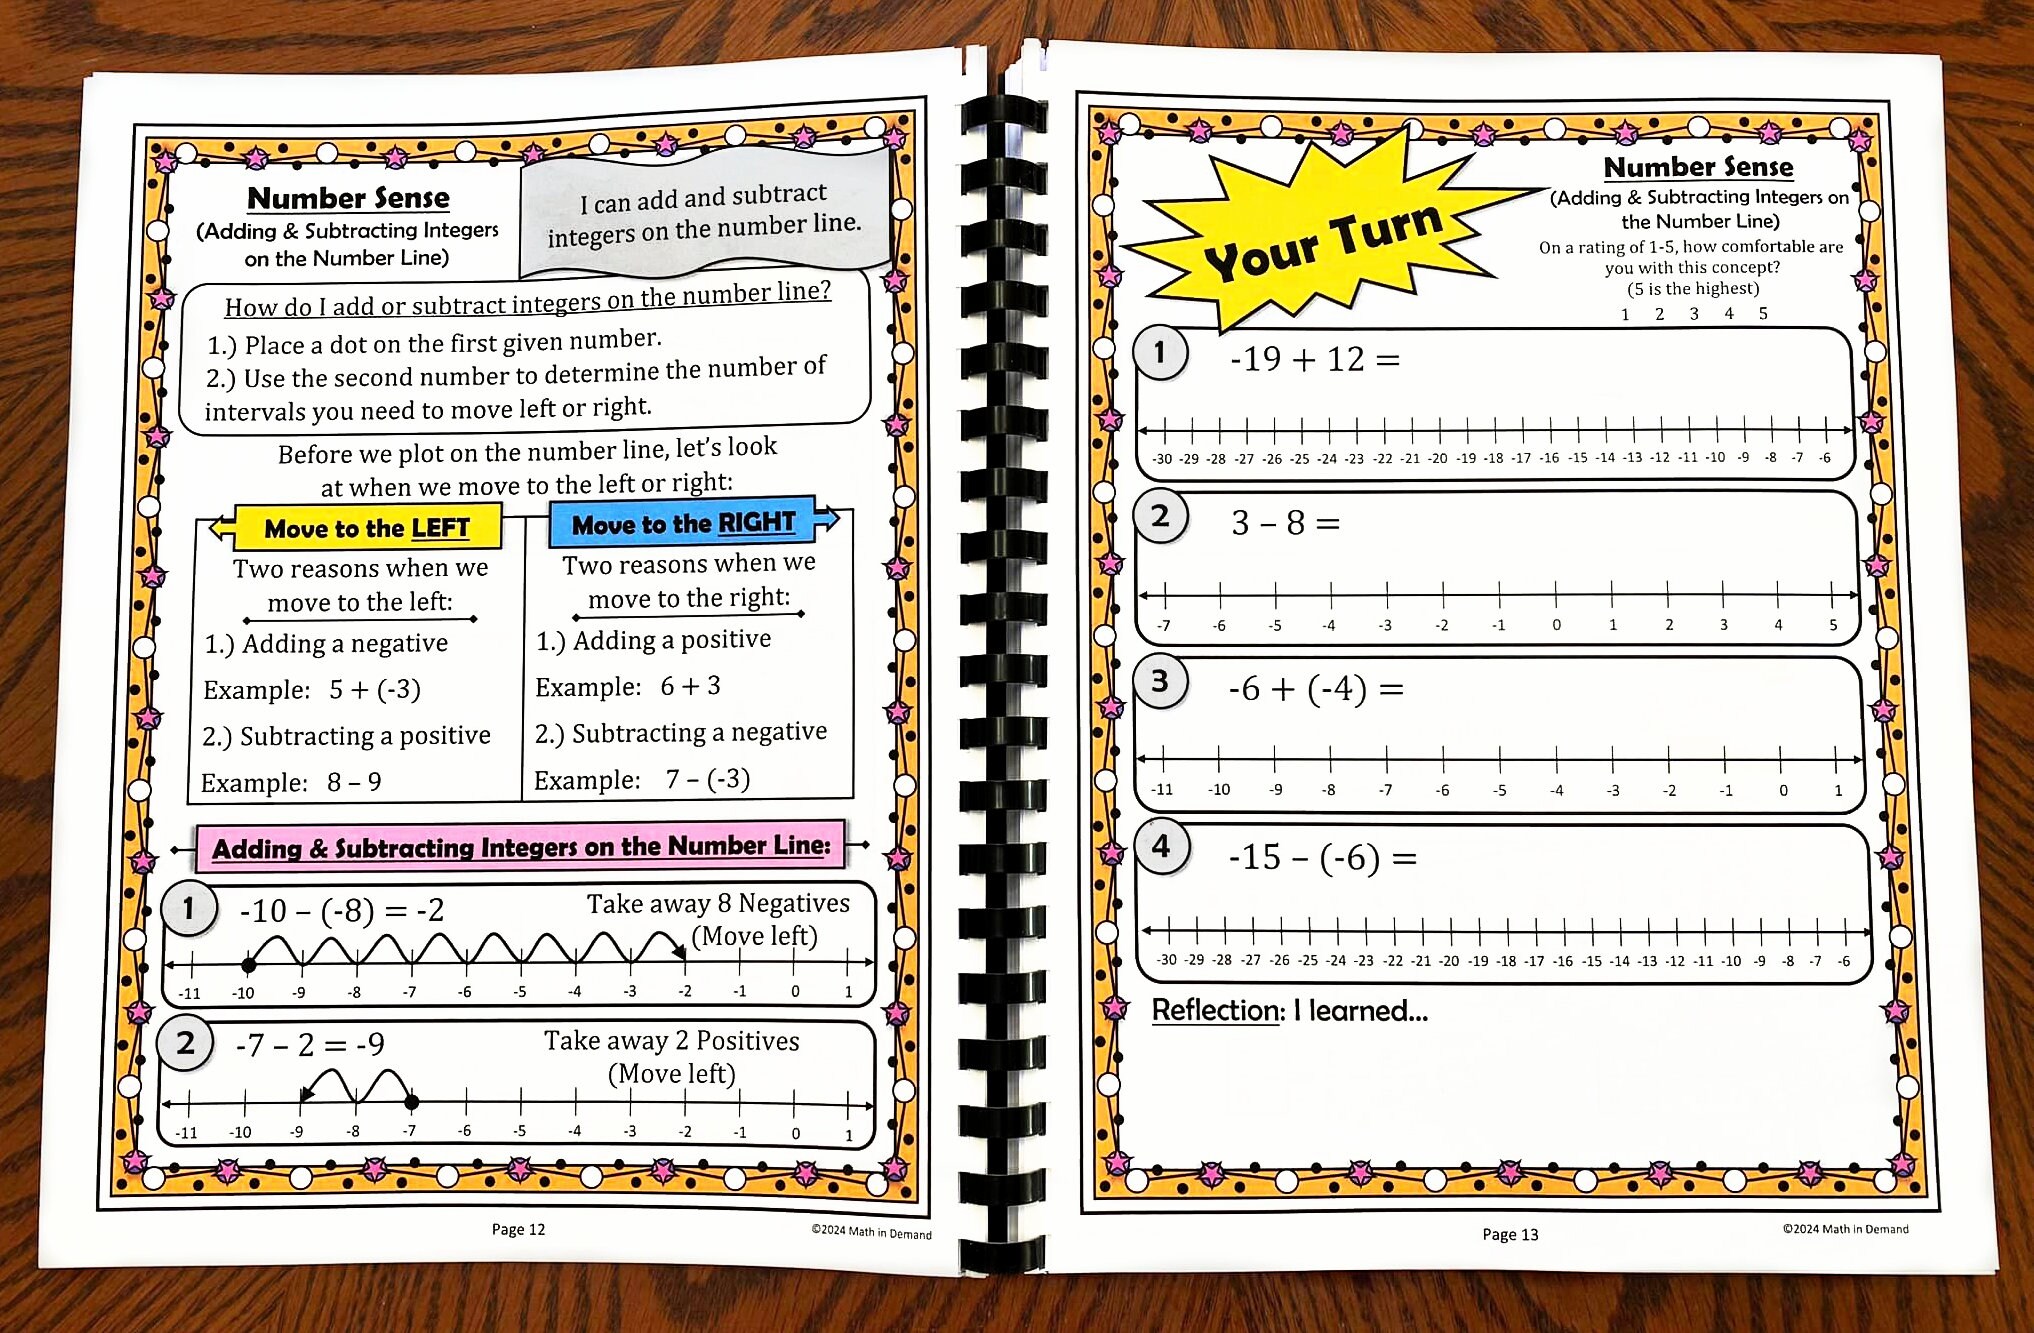 Number Sense
(Adding & Subtracting Integers
on the Number Line)
I can add and subtract
integers on the number line.
How do I add or subtract integers on the number line?
1.) Place a dot on the first given number.
2.) Use the second number to determine the number of
intervals you need to move left or right.
Before we plot on the number line, let's look
at when we move to the left or right:
Move to the LEFT
Two reasons when we
move to the left:
1.) Adding a negative
Example: 5 + (-3)
2.) Subtracting a positive
Example: 8 – 9
Move to the RIGHT
Two reasons when we
move to the right:
1.) Adding a positive
Example: 6 + 3
2.) Subtracting a negative
Example: 7 – (-3)
Adding & Subtracting Integers on the Number Line:
1
-10 – (-8) = -2
Take away 8 Negatives
(Move left)
-11 -10 -9 -8 -7 -6 -5 -4 -3 -2 -1 0 1
2
-7 – 2 = -9
Take away 2 Positives
(Move left)
-11 -10 -9 -8 -7 -6 -5 -4 -3 -2 -1 0 1
Page 12
©2024 Math in Demand
Your Turn
Number Sense
(Adding & Subtracting Integers on
the Number Line)
On a rating of 1-5, how comfortable are
you with this concept?
(5 is the highest)
1 2 3 4 5
1
-19 + 12 =
-30 -29 -28 -27 -26 -25 -24 -23 -22 -21 -20 -19 -18 -17 -16 -15 -14 -13 -12 -11 -10 -9 -8 -7 -6
2
3 – 8 =
-7 -6 -5 -4 -3 -2 -1 0 1 2 3 4 5
3
-6 + (-4) =
-11 -10 -9 -8 -7 -6 -5 -4 -3 -2 -1 0 1
4
-15 – (-6) =
-30 -29 -28 -27 -26 -25 -24 -23 -22 -21 -20 -19 -18 -17 -16 -15 -14 -13 -12 -11 -10 -9 -8 -7 -6
Reflection: I learned...
Page 13
©2024 Math in Demand